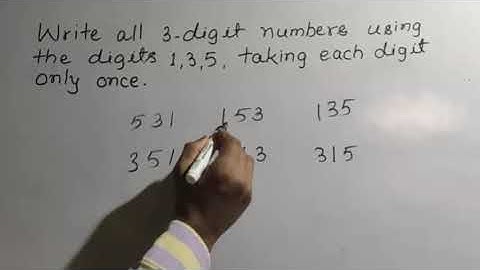 Write all 3-digit numbers using
the digits 1,3,5, taking each digit
only once.
531 153 135
351 3 315